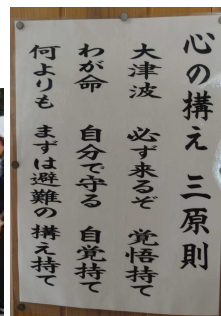 心の構え 三原則
大津波 必ず来るぞ 覚悟持て
わが命 自分で守る 自覚持て
何よりも まずは避難の 構え持て